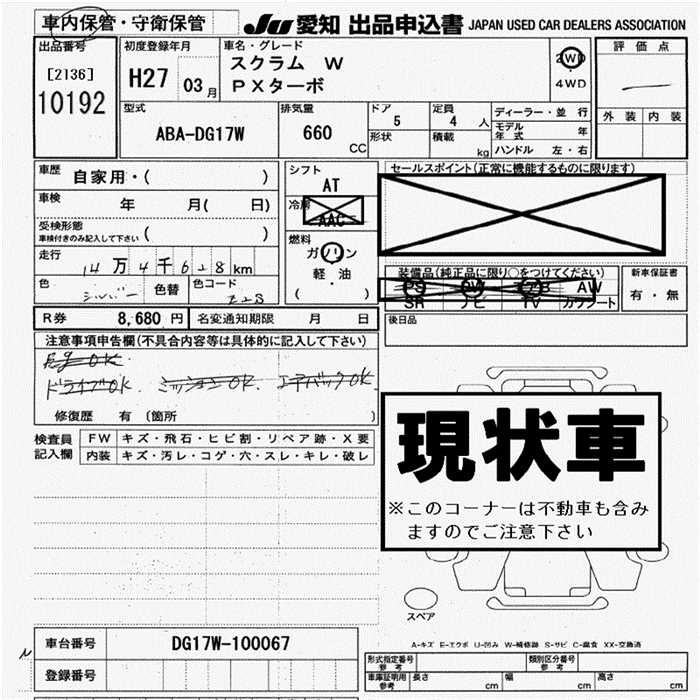 車内保管・守衛保管 JU 愛知 出品申込書 JAPAN USED CAR DEALERS ASSOCIATION
出品番号 初度登録年月 車名・グレード 評価点
[2136] H27 03月 スクラム W 2WD
10192 PXターボ 4WD
外装 内装
型式 排気量 ドア 定員 ディーラー・並行
ABA-DG17W 660 CC 5 4人 モデル年式 年
形状 積載 kg ハンドル 左・右
車歴 自家用・( ) シフト AT セールスポイント(正常に機能するものに限ります)
車検 年 月( 日) 冷房 AAC
受検形態 ( )
車検付きのみ記入して下さい
燃料 ガソリン
軽・油
( )
走行 14万4千628km
色 シルバー 色替 色コード Z2S
装備品(純正品に限り○をつけてください) 新車保証書
PS PW AW 有・無
SR ナビ TV カワシート
R券 8,680円 名変通知期限 月 日 後日品
注意事項申告欄(不具合内容等は具体的に記入して下さい)
Eg OK
ドライブOK. ミッションOK. エアバックOK.
修復歴 有 (箇所 )
検査員記入欄 FW キズ・飛石・ヒビ割・リペア跡・X要
内装 キズ・汚レ・コゲ・穴・スレ・キレ・破レ
現状車
※このコーナーは不動車も含み
ますのでご注意下さい
スペア
A-キズ E-エクボ U-凹み W-補修跡 S-サビ C-腐食 XX-交換済
車台番号 DG17W-100067
登録番号
形式指定番号 参考 類別区分番号 参考
車庫証明用 参考 長さ cm 幅 cm 高さ cm